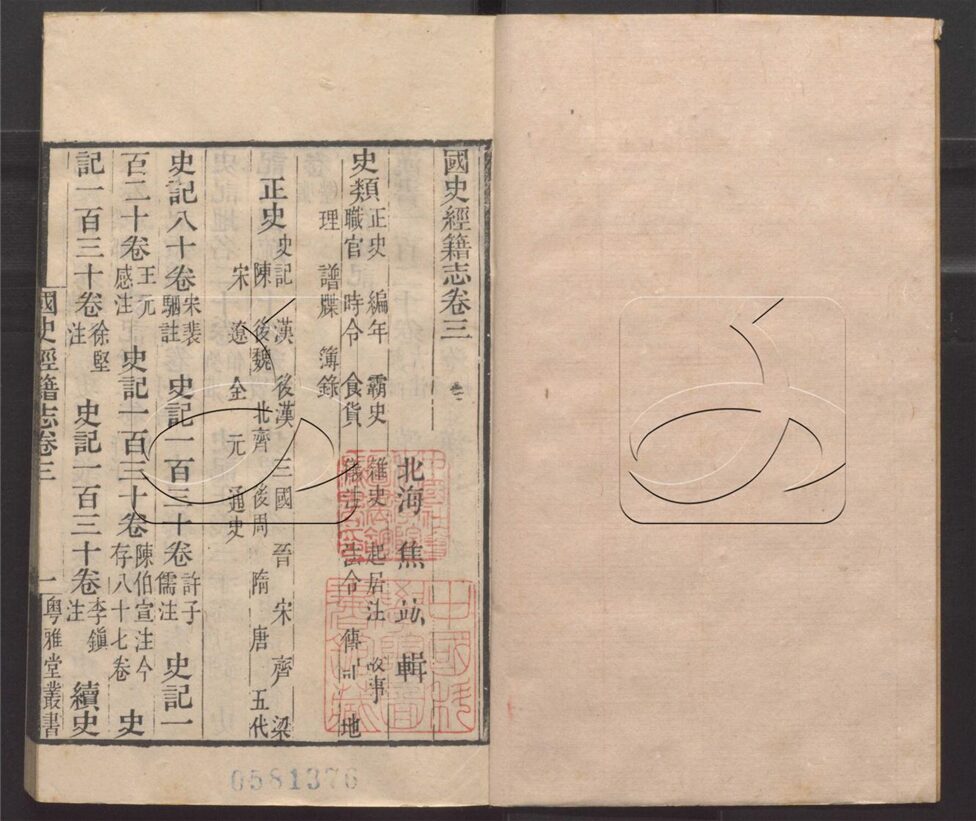 國史經籍志卷三
北海 焦竑 輯
史類 正史 編年 霸史 雜史 起居注 故事
職官 時令 食貨 儀注 法令 傳記 地
理 譜牒 簿錄
正史 史記 漢 後漢 三國 晉 宋 齊 梁
陳 後魏 北齊 後周 隋 唐 五代
宋 遼 金 元 通史
史記八十卷 宋裴駰註 史記一百三十卷 許子儒注 史記一
百二十卷 王元感注 史記一百三十卷 陳伯宣注今存八十七卷 史
記一百三十卷 徐堅注 史記一百三十卷 李鎮注 續史
國史經籍志卷三 一 粵雅堂叢書
0581376